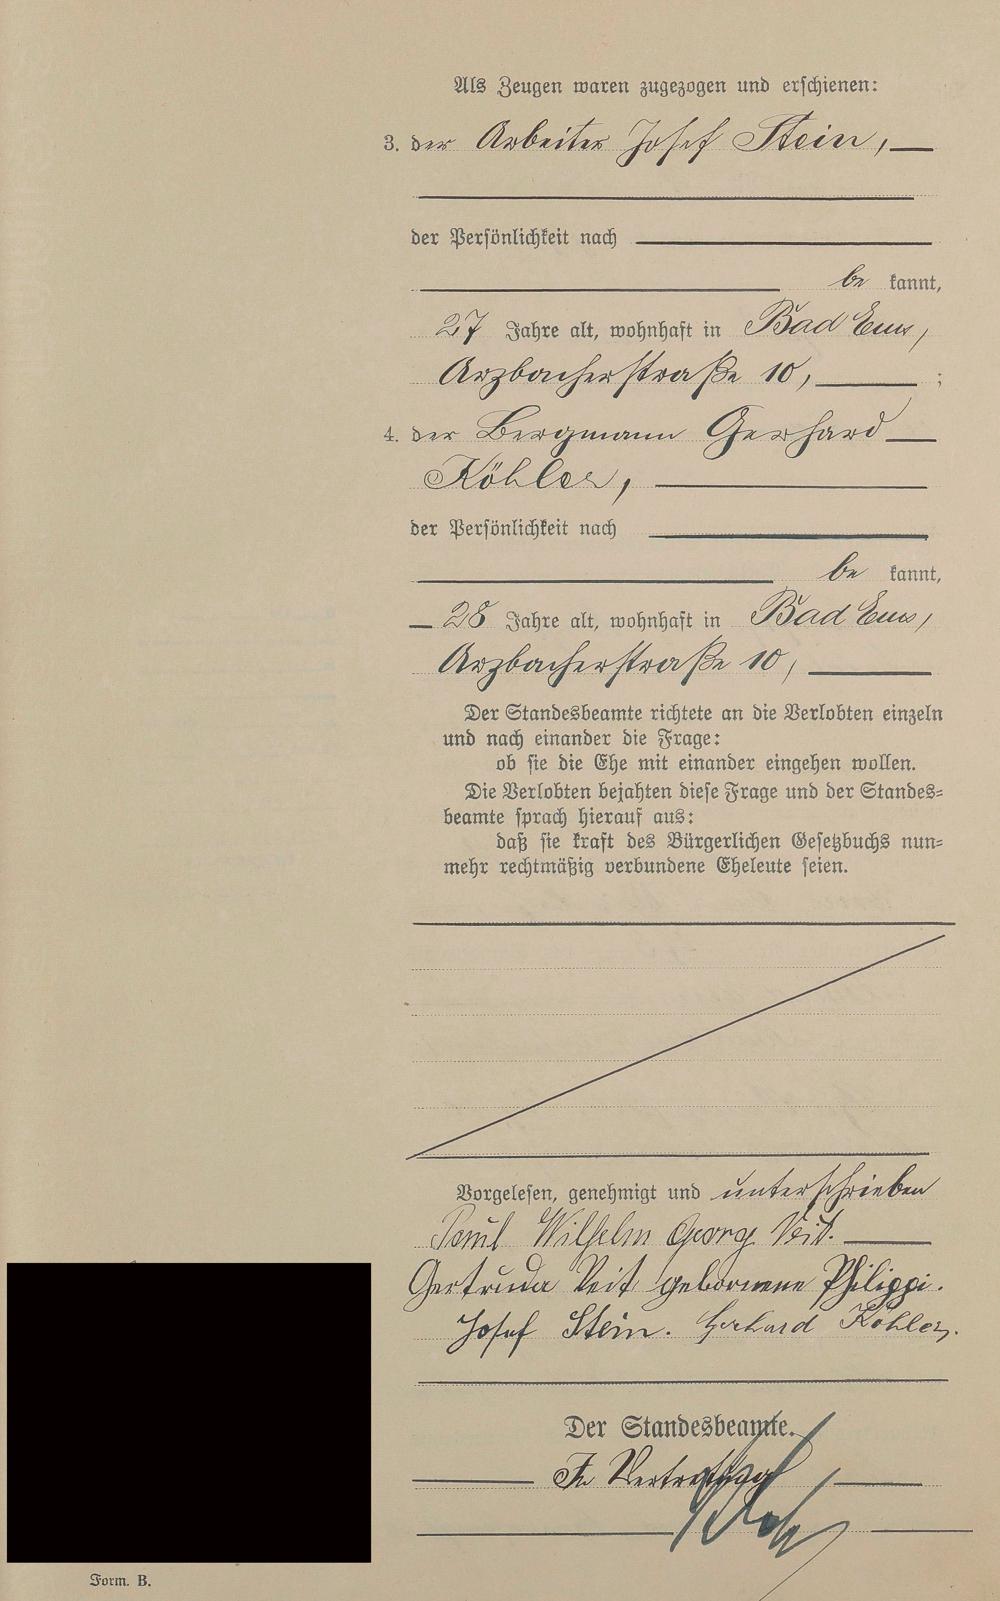 Als Zeugen waren zugezogen und erschienen:
3. der Arbeiter Josef Stein,
der Persönlichkeit nach
be kannt,
27 Jahre alt, wohnhaft in Bad Ems,
Arzbacherstraße 10, ;
4. der Bergmann Gerhard
Köhler,
der Persönlichkeit nach
be kannt,
28 Jahre alt, wohnhaft in Bad Ems,
Arzbacherstraße 10,
Der Standesbeamte richtete an die Verlobten einzeln
und nach einander die Frage:
ob sie die Ehe mit einander eingehen wollen.
Die Verlobten bejahten diese Frage und der Standes-
beamte sprach hierauf aus:
daß sie kraft des Bürgerlichen Gesetzbuchs nun-
mehr rechtmäßig verbundene Eheleute seien.
Vorgelesen, genehmigt und unterschrieben
Paul Wilhelm Georg Veit.
Gertruda Veit geborene Philippi.
Josef Stein. Gerhard Köhler.
Der Standesbeamte.
In Vertretung
Form. B.